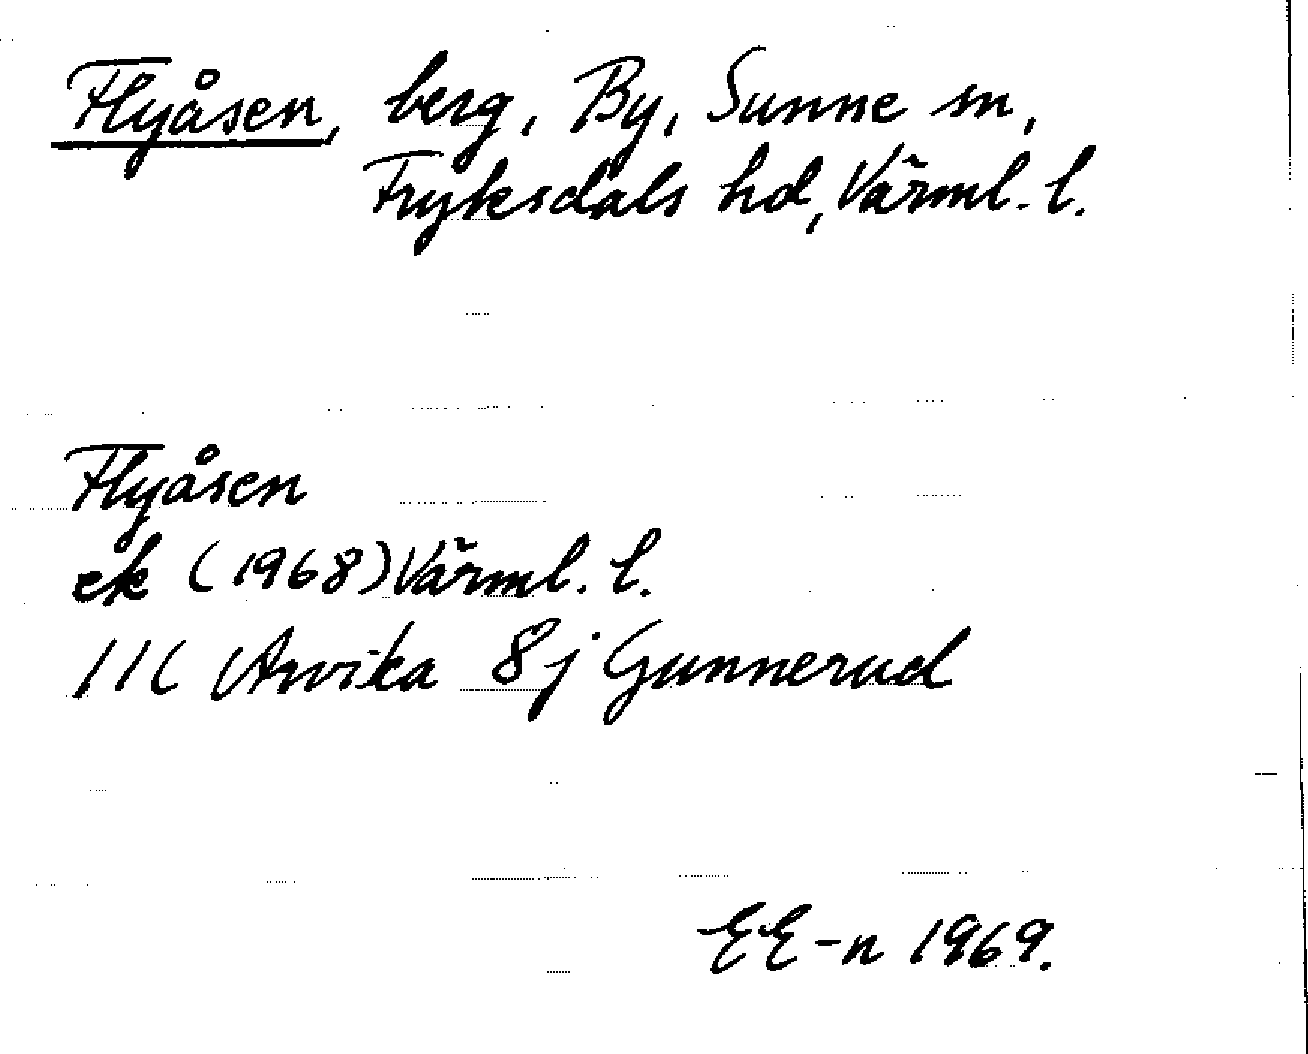 Flyåsen, berg, By, Sunne sn,
Fryksdals hd, Värml. l.
Flyåsen
ek (1968) Värml. l.
11C Arvika 8j Gunnerud
EE-n 1969.